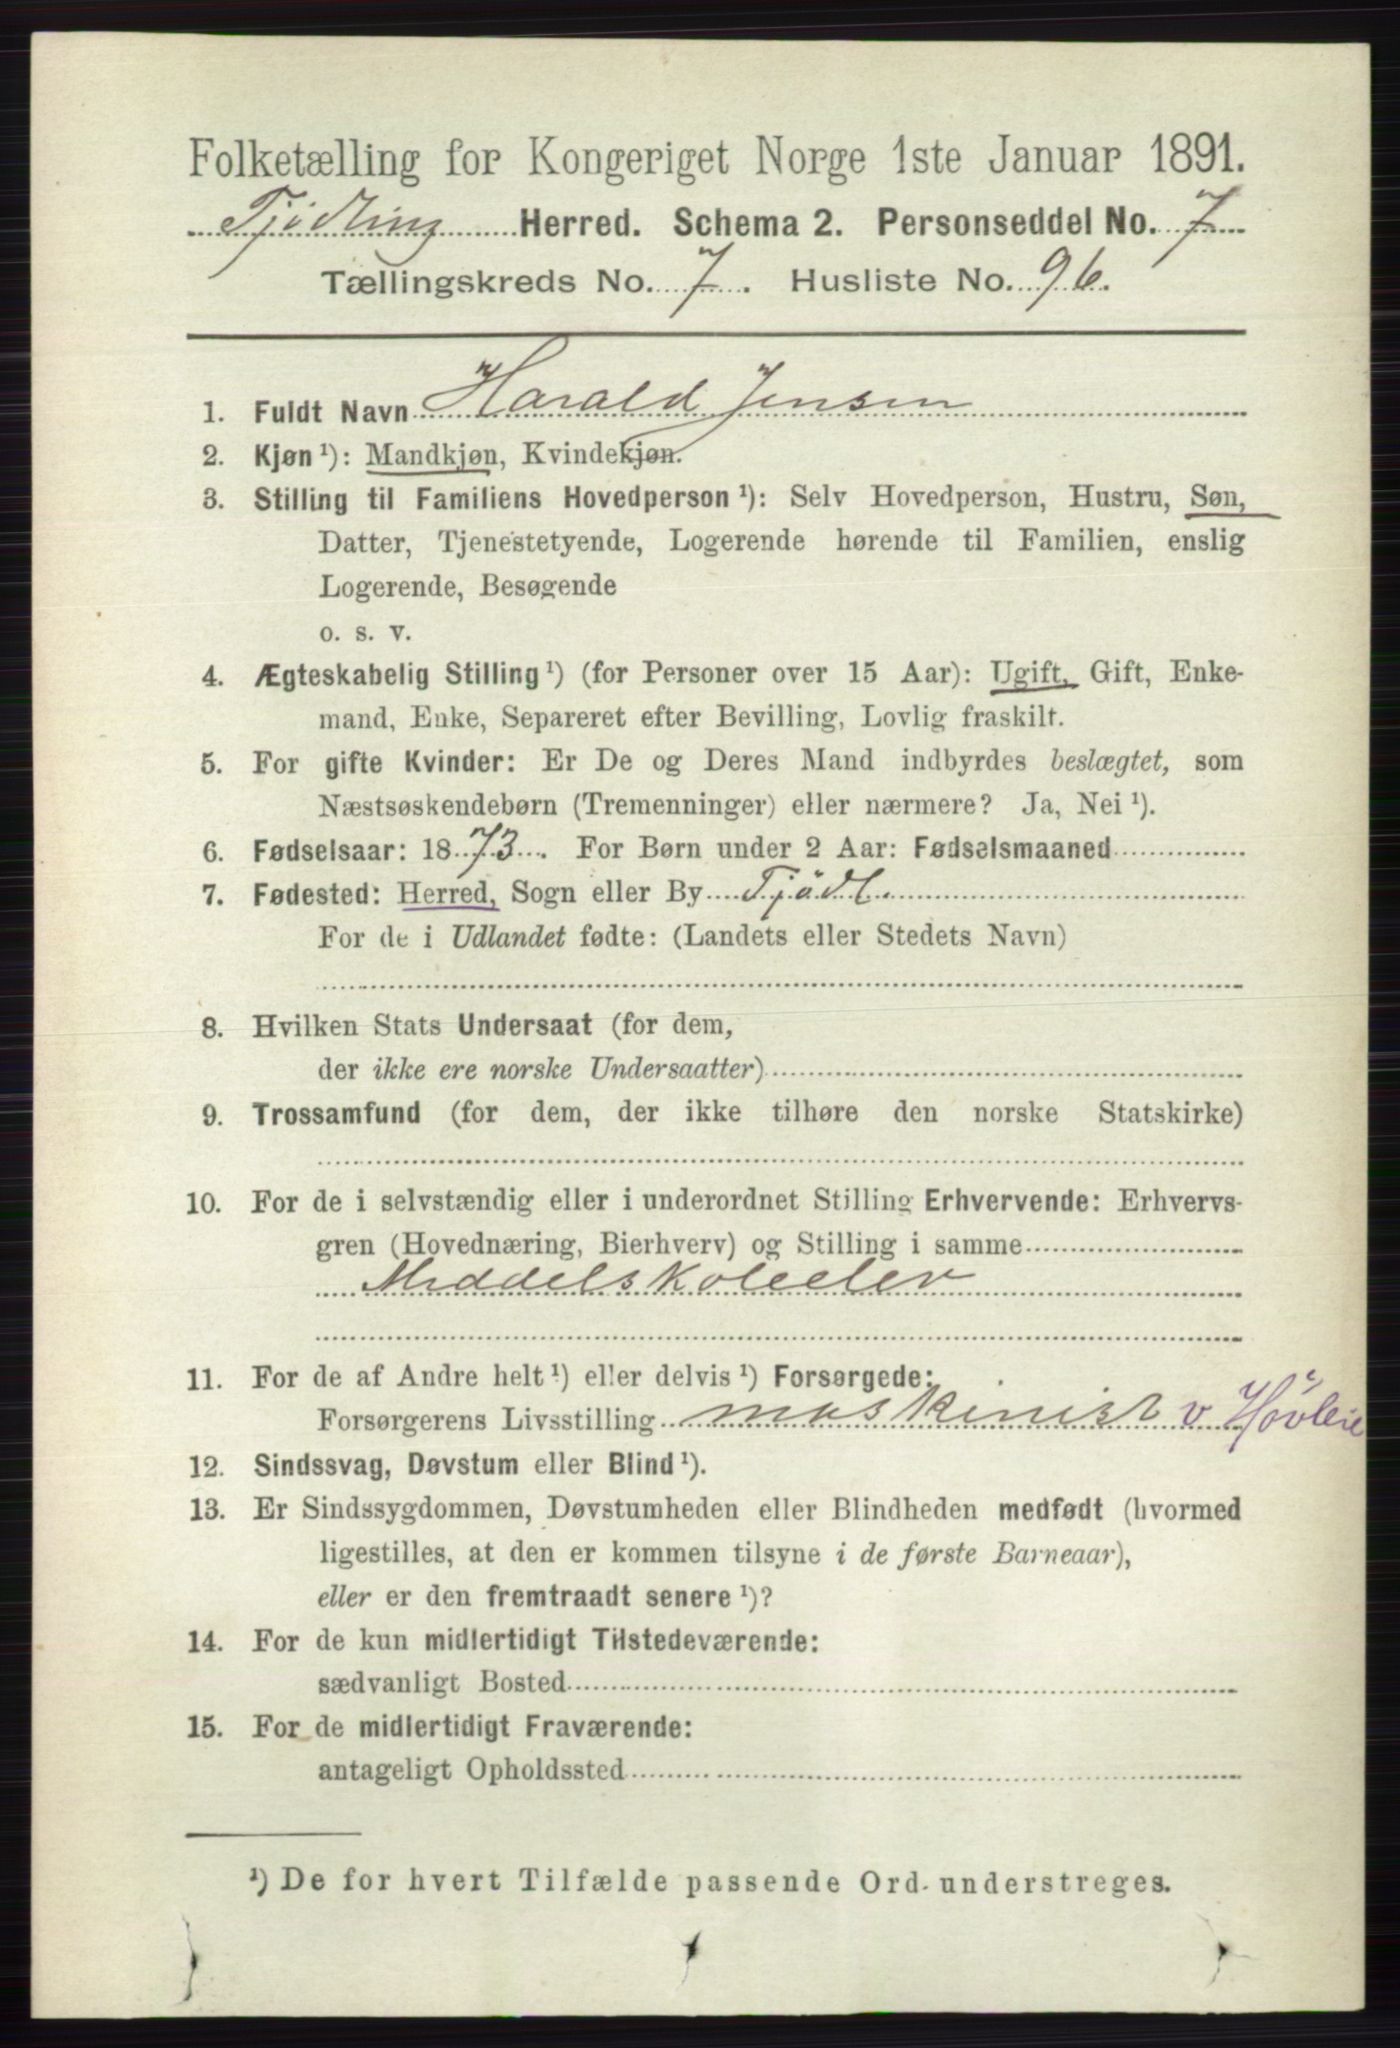 Folketælling for Kongeriget Norge 1ste Januar 1891.
Tjødling Herred. Schema 2. Personseddel No. 7
Tællingskreds No. 7. Husliste No. 96.
1. Fuldt Navn Harald Jensen
2. Kjøn ¹): Mandkjøn, Kvindekjøn.
3. Stilling til Familiens Hovedperson ¹): Selv Hovedperson, Hustru, Søn,
Datter, Tjenestetyende, Logerende hørende til Familien, enslig
Logerende, Besøgende
o. s. v.
4. Ægteskabelig Stilling ¹) (for Personer over 15 Aar): Ugift, Gift, Enke-
mand, Enke, Separeret efter Bevilling, Lovlig fraskilt.
5. For gifte Kvinder: Er De og Deres Mand indbyrdes beslægtet, som
Næstsøskendebørn (Tremenninger) eller nærmere? Ja, Nei ¹).
6. Fødselsaar: 1873. For Børn under 2 Aar: Fødselsmaaned
7. Fødested: Herred, Sogn eller By Tjödl.
For de i Udlandet fødte: (Landets eller Stedets Navn)
8. Hvilken Stats Undersaat (for dem,
der ikke ere norske Undersaatter)
9. Trossamfund (for dem, der ikke tilhøre den norske Statskirke)
10. For de i selvstændig eller i underordnet Stilling Erhvervende: Erhvervs-
gren (Hovednæring, Bierhverv) og Stilling i samme
Middelskoleelev
11. For de af Andre helt ¹) eller delvis ¹) Forsørgede:
Forsørgerens Livsstilling maskinist v Hövleie
12. Sindssvag, Døvstum eller Blind ¹).
13. Er Sindssygdommen, Døvstumheden eller Blindheden medfødt (hvormed
ligestilles, at den er kommen tilsyne i de første Barneaar),
eller er den fremtraadt senere ¹)?
14. For de kun midlertidigt Tilstedeværende:
sædvanligt Bosted
15. For de midlertidigt Fraværende:
antageligt Opholdssted
¹) De for hvert Tilfælde passende Ord understreges.